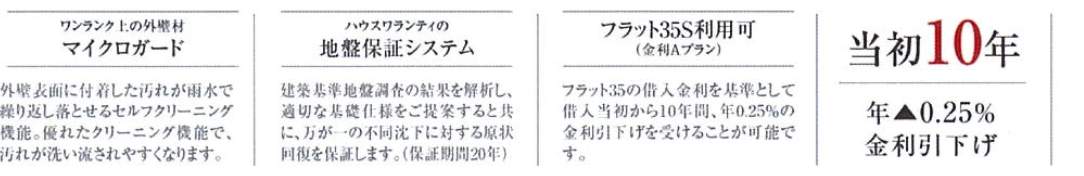 ワンランク上の外壁材
マイクロガード
外壁表面に付着した汚れが雨水で
繰り返し落とせるセルフクリーニング
機能。優れたクリーニング機能で、
汚れが洗い流されやすくなります。
ハウスワランティの
地盤保証システム
建築基準地盤調査の結果を解析し、
適切な基礎仕様をご提案すると共
に、万が一の不同沈下に対する原状
回復を保証します。(保証期間20年)
フラット35S利用可
(金利Aプラン)
フラット35の借入金利を基準として
借入当初から10年間、年0.25%の
金利引下げを受けることが可能で
す。
当初10年
年▲0.25%
金利引下げ